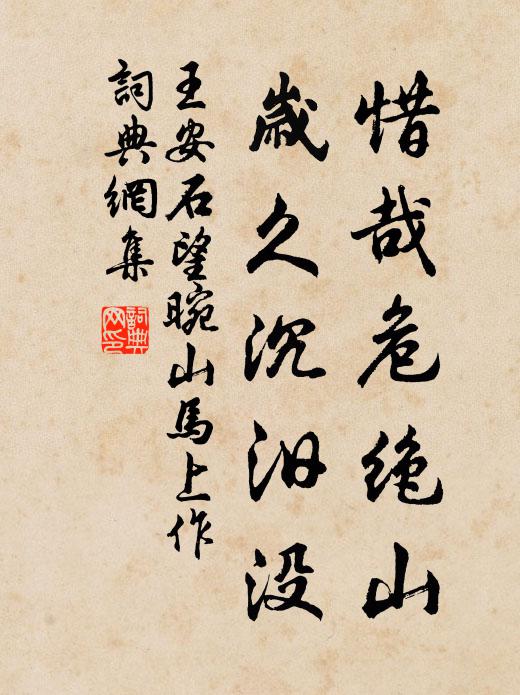 惜哉危絶山
歲久沉汨没
王安石望晼山馬上作
詞典網集
詞典网印